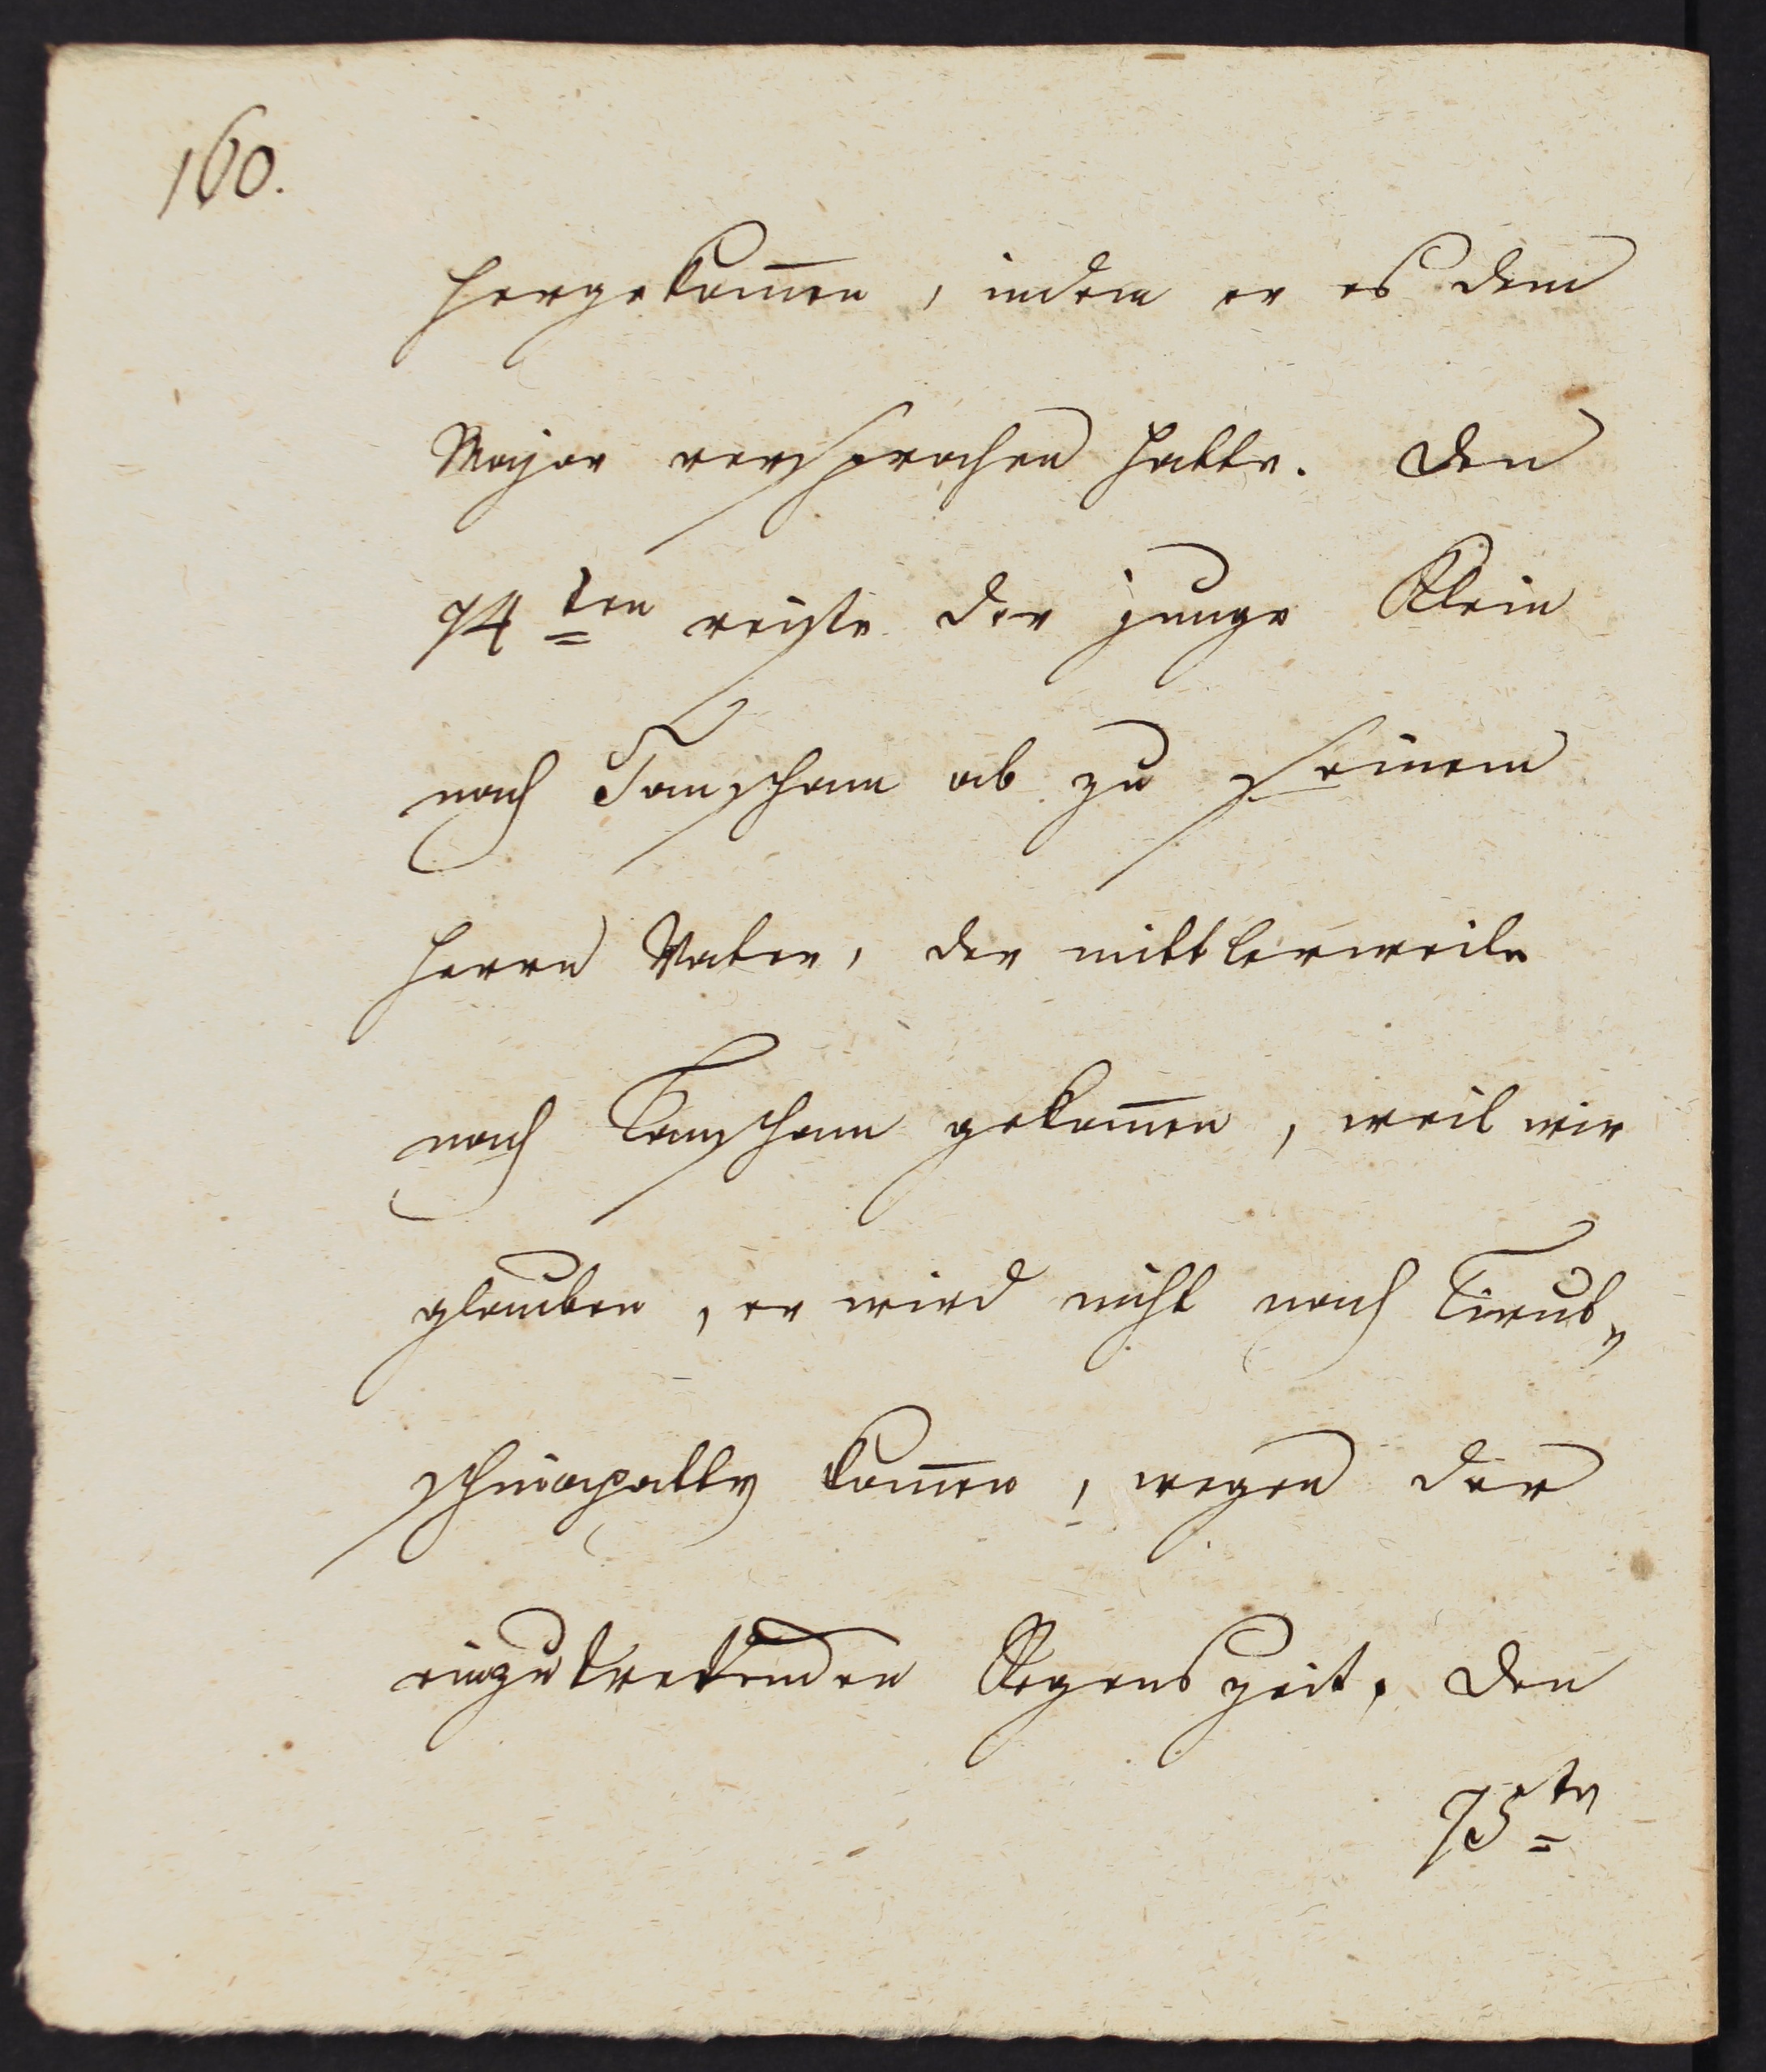 160.
hergekom̅en, indem er es dem
Major versprochen hatte. Den
14ten reiste der junge Klein
nach Tanschaur ab zu seinem
Herrn Vater, der mittlerweile
nach Tanschaur gekom̅en, weil wir
glauben, er wird nicht nach Tirut„
schinapally kom̅en, wegen der
einzutretenden Regenszeit. Den
15ten